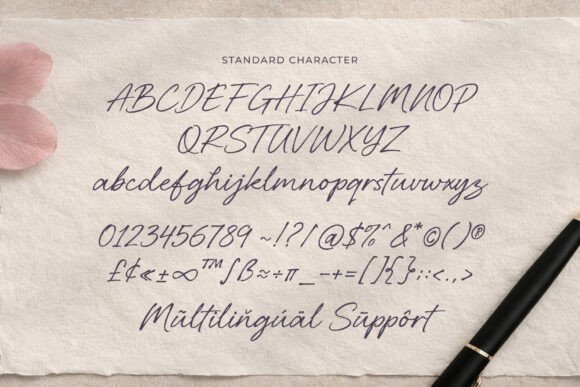 STANDARD CHARACTER
ABCDEFGHIJKLMNOP
QRSTUVWXYZ
abcdefghijklmnopqrstuvwxyz
0123456789 ~!?/|@$%^&*©()®
£¢«±∞™∫ß≈÷π_-+=[]{};:<.,>
Mūltiliňgúäl Sūppôrt